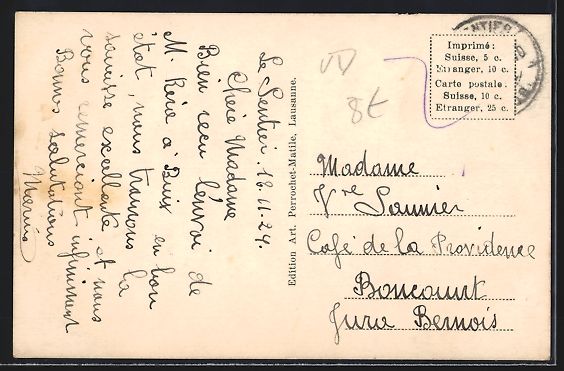 Le Sentier. 18.11.24.
Chère Madame
Bien reçu l'envoi de
M. Rére à Buix en bon
état, nous trouvons la
saucisse excellente et nous
vous remerciant infiniment
Bonnes salutations
Edition Art. Perrochet-Matile, Lausanne.
ENTIER
Imprimé:
Suisse, 5 c.
Etranger, 10 c.
Carte postale:
Suisse, 10 c.
Etranger, 25 c.
8€
Madame
Vve Saunier
Café de la Providence
Boncourt
Jura Bernois